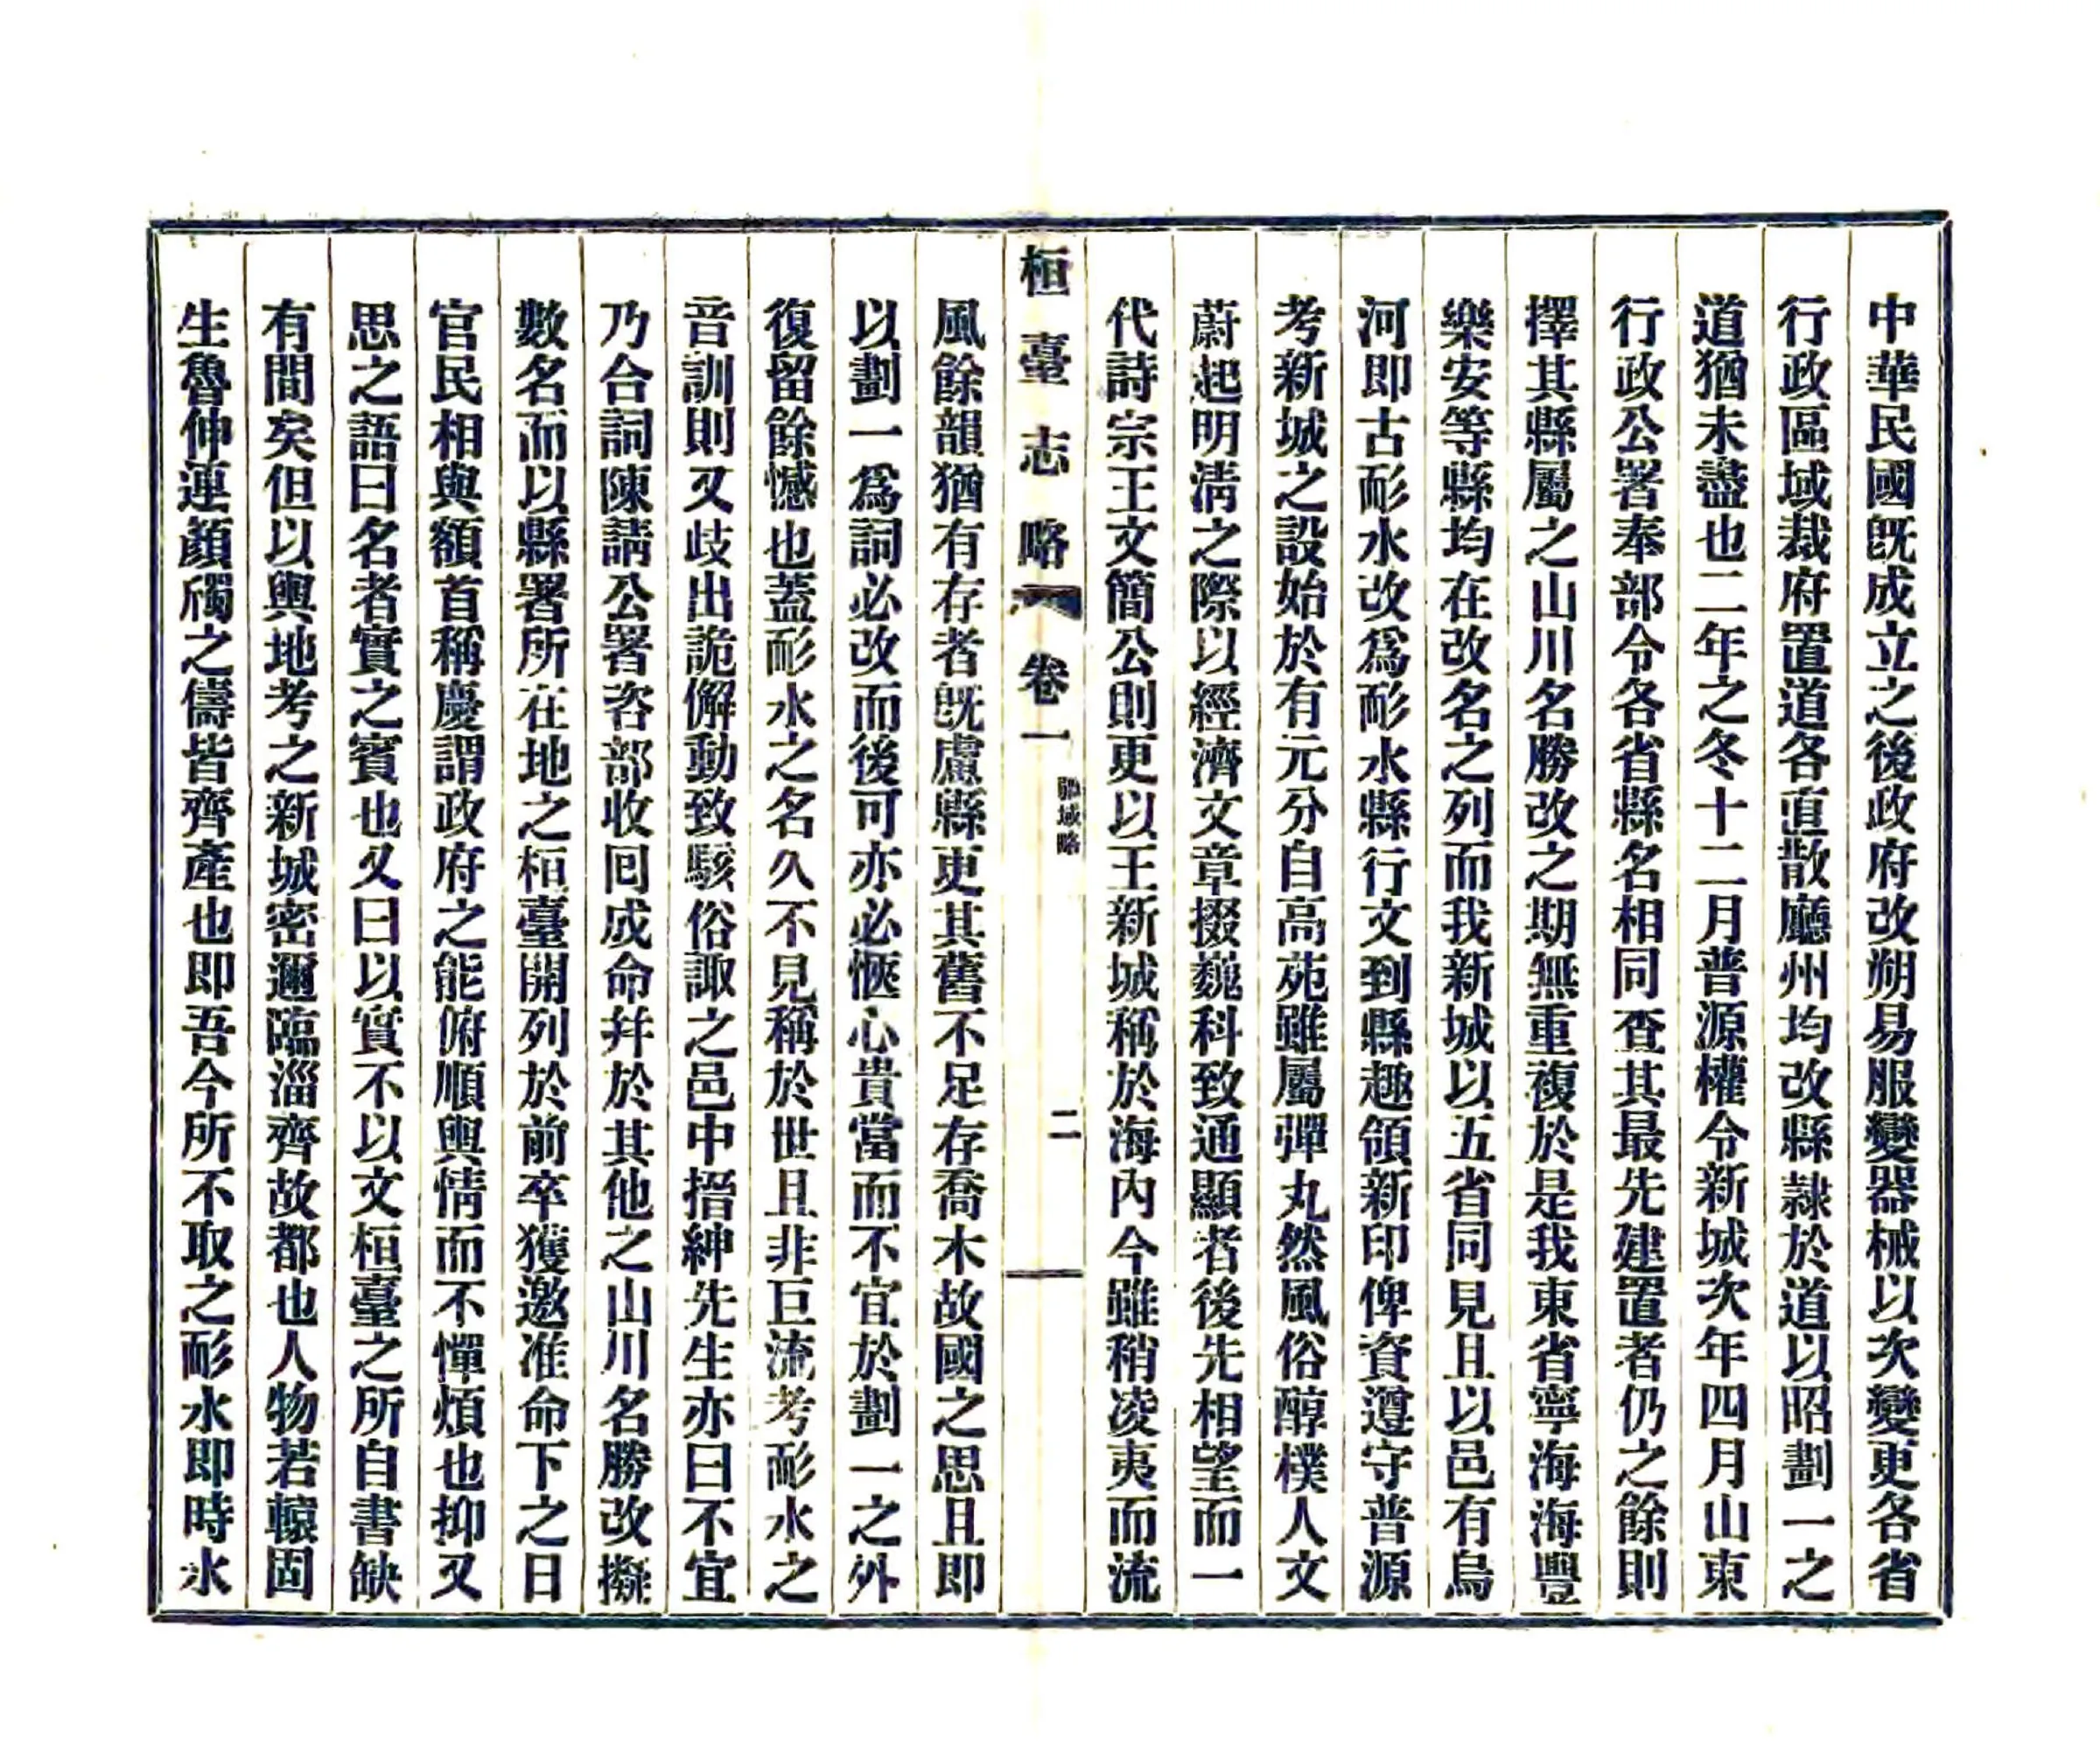 中華民國旣成立之後政府改朔易服變器械以次變更各省
行政區域裁府置道各直散廳州均改縣隷於道以昭劃一之
道猶未盡也二年之冬十二月普源權令新城次年四月山東
行政公署奉部令各省縣名相同查其最先建置者仍之餘則
擇其縣屬之山川名勝改之期無重複於是我東省寧海海豐
樂安等縣均在改名之列而我新城以五省同見且以邑有烏
河即古耏水改爲耏水縣行文到縣趣領新印俾資遵守普源
考新城之設始於有元分自高苑雖屬彈丸然風俗醇樸人文
蔚起明淸之際以經濟文章掇巍科致通顯者後先相望而一
代詩宗王文簡公則更以王新城稱於海內今雖稍凌夷而流
桓臺志略 卷一 疆域略 二
風餘韻猶有存者旣慮縣更其舊不足存喬木故國之思且即
以劃一爲詞必改而後可亦必愜心貴當而不宜於劃一之外
復留餘憾也蓋耏水之名久不見稱於世且非巨流考耏水之
音訓則又歧出詭僻動致駭俗諏之邑中搢紳先生亦曰不宜
乃合詞陳請公署咨部收回成命幷於其他之山川名勝改擬
數名而以縣署所在地之桓臺開列於前卒獲邀准命下之日
官民相與額首稱慶謂政府之能俯順輿情而不憚煩也抑又
思之語曰名者實之賓也又曰以實不以文桓臺之所自書缺
有間矣但以輿地考之新城密邇臨淄齊故都也人物若轅固
生魯仲連顏斶之儔皆齊產也即吾今所不取之耏水即時水